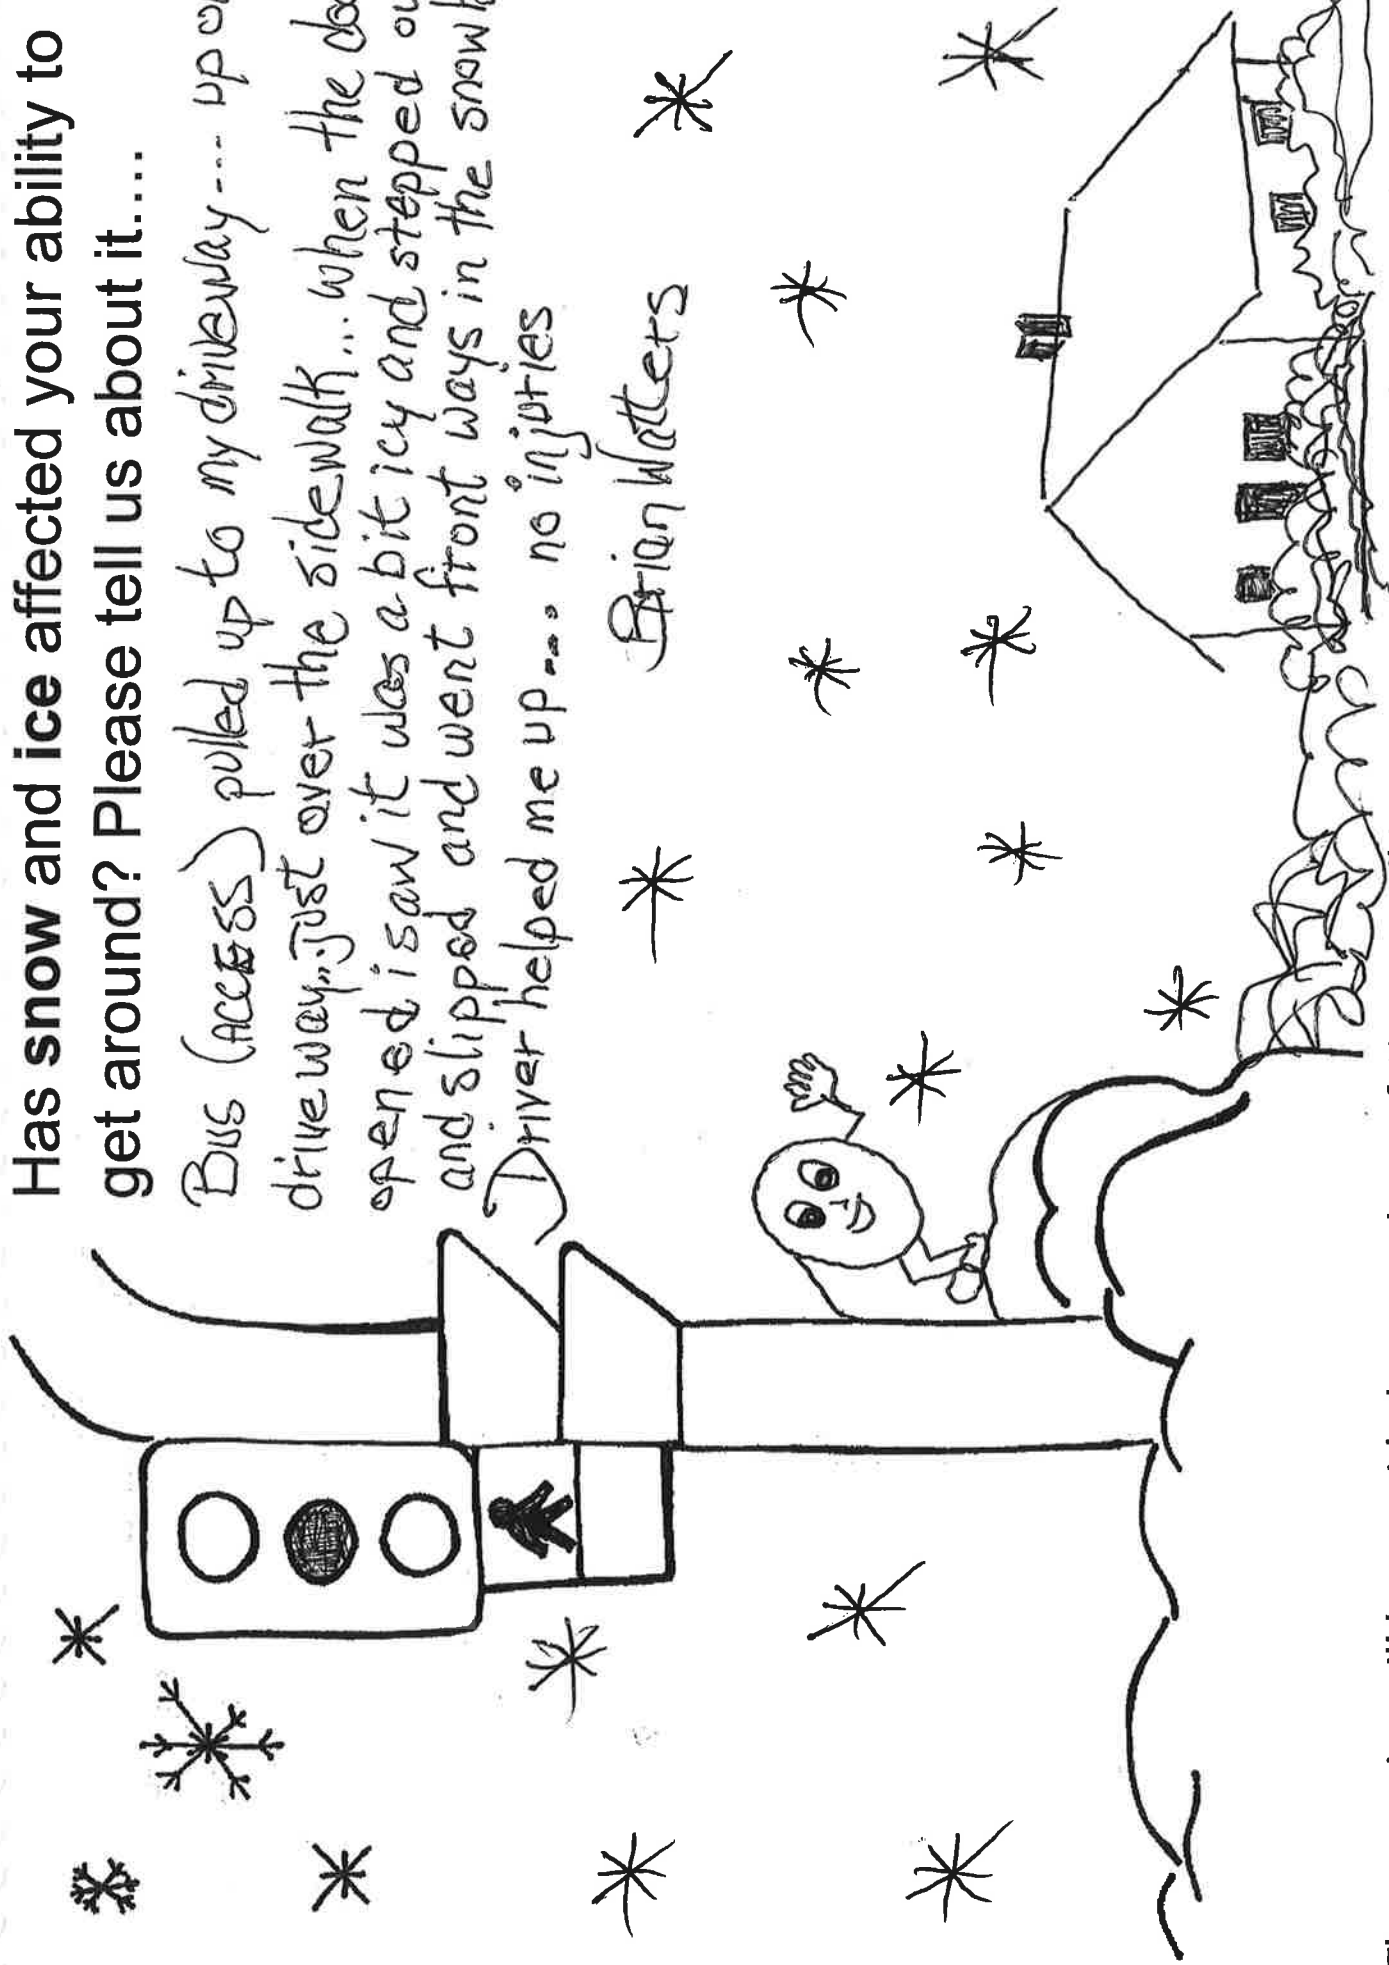 Has snow and ice affected your ability to
get around? Please tell us about it....
Bus (ACCESS) pulled up to my driveway---- up
driveway,, just over the sidewalk.... when the
opened i saw it was a bit icy and stepped
and slipped and went front ways in the
Driver helped me up.... no injuries
Brian Watters